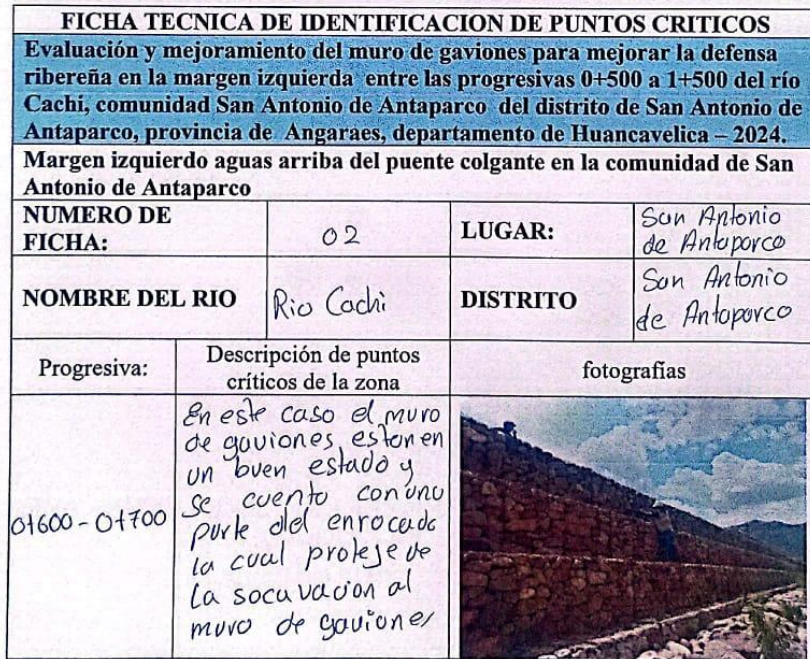 FICHA TECNICA DE IDENTIFICACION DE PUNTOS CRITICOS
Evaluación y mejoramiento del muro de gaviones para mejorar la defensa
ribereña en la margen izquierda entre las progresivas 0+500 a 1+500 del río
Cachi, comunidad San Antonio de Antaparco del distrito de San Antonio de
Antaparco, provincia de Angaraes, departamento de Huancavelica – 2024.
Margen izquierdo aguas arriba del puente colgante en la comunidad de San
Antonio de Antaparco
NUMERO DE
FICHA:
02
LUGAR:
San Antonio
de Antaparco
NOMBRE DEL RIO
Rio Cachi
DISTRITO
San Antonio
de Antaparco
Progresiva:
Descripción de puntos
críticos de la zona
fotografías
0+600 - 0+700
En este caso el muro
de gaviones estan en
un buen estado y
se cuenta con una
parte del enrocado
la cual proteje de
la socavacion al
muro de gaviones